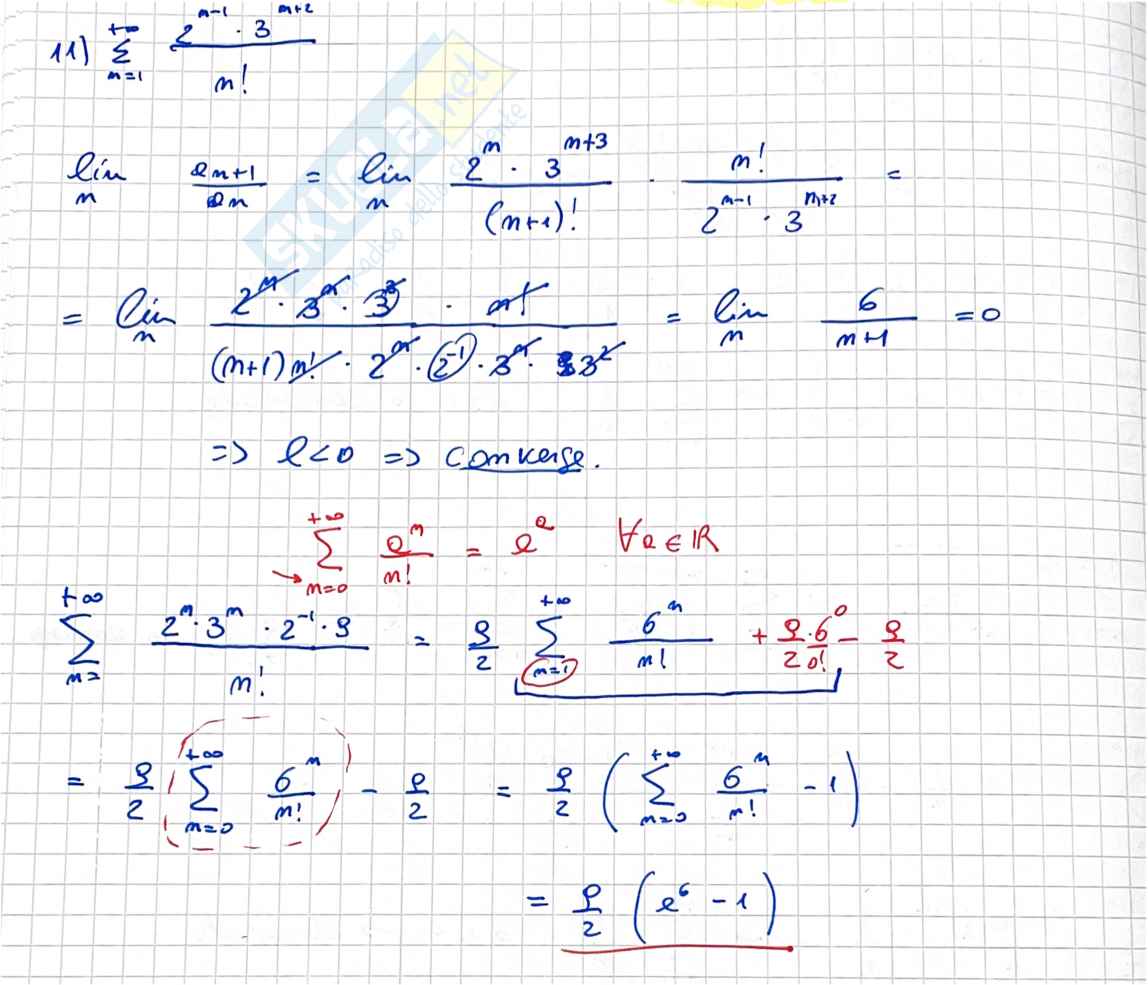 11) \sum_{n=1}^{+\infty} \frac{2^{n-1} \cdot 3^{n+2}}{n!}
SKUOLA.net
paradiso dello studente
\lim_n \frac{a_{n+1}}{a_n} = \lim_n \frac{2^n \cdot 3^{n+3}}{(n+1)!} \cdot \frac{n!}{2^{n-1} \cdot 3^{n+2}} =
= \lim_n \frac{2^n \cdot 3^n \cdot 3^3 \cdot n!}{(n+1) n! \cdot 2^n \cdot 2^{-1} \cdot 3^n \cdot 3^2} = \lim_n \frac{6}{n+1} = 0
=> l<0 => converge.
\sum_{n=0}^{+\infty} \frac{a^n}{n!} = e^a ∀a ∈ ℝ
\sum_{n=}^{+\infty} \frac{2^n \cdot 3^n \cdot 2^{-1} \cdot 9}{n!} = \frac{9}{2} \sum_{n=1}^{+\infty} \frac{6^n}{n!} + \frac{9}{2} \cdot \frac{6^0}{0!} - \frac{9}{2}
= \frac{9}{2} \sum_{n=0}^{+\infty} \frac{6^n}{n!} - \frac{9}{2} = \frac{9}{2} \left( \sum_{n=0}^{+\infty} \frac{6^n}{n!} - 1 \right)
= \frac{9}{2} \left( e^6 - 1 \right)